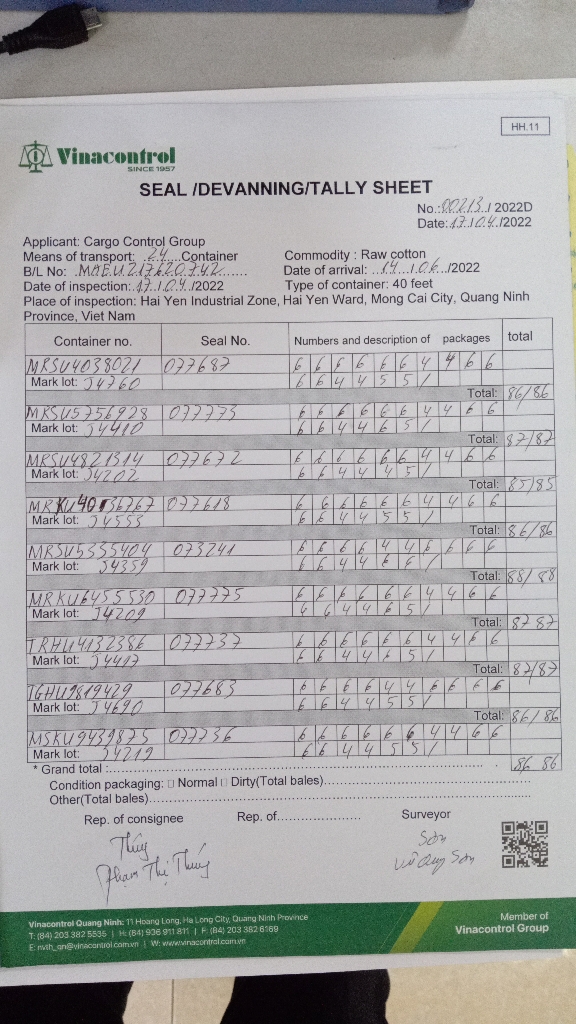 HH.11
Vinacontrol
SINCE 1957
SEAL /DEVANNING/TALLY SHEET
No.:00213./2022D
Date:17.1.04./2022
Applicant: Cargo Control Group
Means of transport: .24....Container Commodity : Raw cotton
B/L No: MAEU217620742...... Date of arrival: ..14...1.06../2022
Date of inspection:.17.1.04./2022 Type of container: 40 feet
Place of inspection: Hai Yen Industrial Zone, Hai Yen Ward, Mong Cai City, Quang Ninh
Province, Viet Nam
Container no. Seal No. Numbers and description of packages total
MRSU4038021 077687 6 6 6 6 6 6 4 4 6 6
Mark lot: J4760 6 6 4 4 5 5 /
Total: 86/86
MRSU5756928 077773 6 6 6 6 6 6 4 4 6 6
Mark lot: J4410 6 6 4 4 6 5 /
Total: 87/87
MRSU4821314 077672 6 6 6 6 6 6 4 4 6 6
Mark lot: J4202 6 6 4 4 4 5 /
Total: 85/85
MRKU4036767 077618 6 6 6 6 6 6 4 4 6 6
Mark lot: J4553 6 6 4 4 5 5 /
Total: 86/86
MRSU5335404 073241 6 6 6 6 4 4 6 6 6 6
Mark lot: J4359 6 6 4 4 6 6 /
Total: 88/88
MRKU6455530 077775 6 6 6 6 6 6 4 4 6 6
Mark lot: J4209 6 6 4 4 6 5 /
Total: 87 87
TRHU4132386 077737 6 6 6 6 6 6 4 4 6 6
Mark lot: J4417 6 6 4 4 6 5 /
Total: 87/87
TGHU9819429 077683 6 6 6 6 4 4 6 6 6 6
Mark lot: J4690 6 6 4 4 5 5 /
Total: 86/86
MSKU9439875 077736 6 6 6 6 6 6 4 4 6 6
Mark lot: J4219 6 6 4 4 5 5 /
* Grand total :........ 86 86
Condition packaging: □ Normal □ Dirty(Total bales)........
Other(Total bales)........
Rep. of consignee Rep. of........ Surveyor
Thúy Sơn
Phạm Thị Thúy Vũ Sơn
Vinacontrol Quang Ninh: 11 Hoang Long, Ha Long City, Quang Ninh Province
T: (84) 203 382 5535 | H: (84) 936 911 811 | F: (84) 203 382 6169
E: nvth_qn@vinacontrol.com.vn | W: www.vinacontrol.com.vn
Member of
Vinacontrol Group